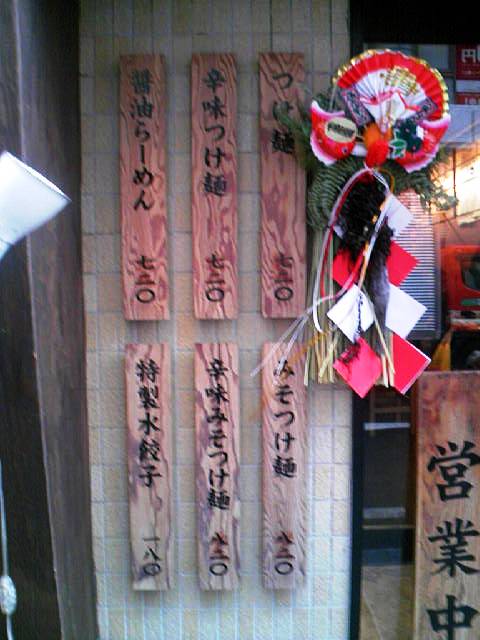 つけ麺 七二〇
辛味つけ麺 七二〇
醤油らーめん 七二〇
みそつけ麺 八二〇
辛味みそつけ麺 八二〇
特製水餃子 一八〇
営業中